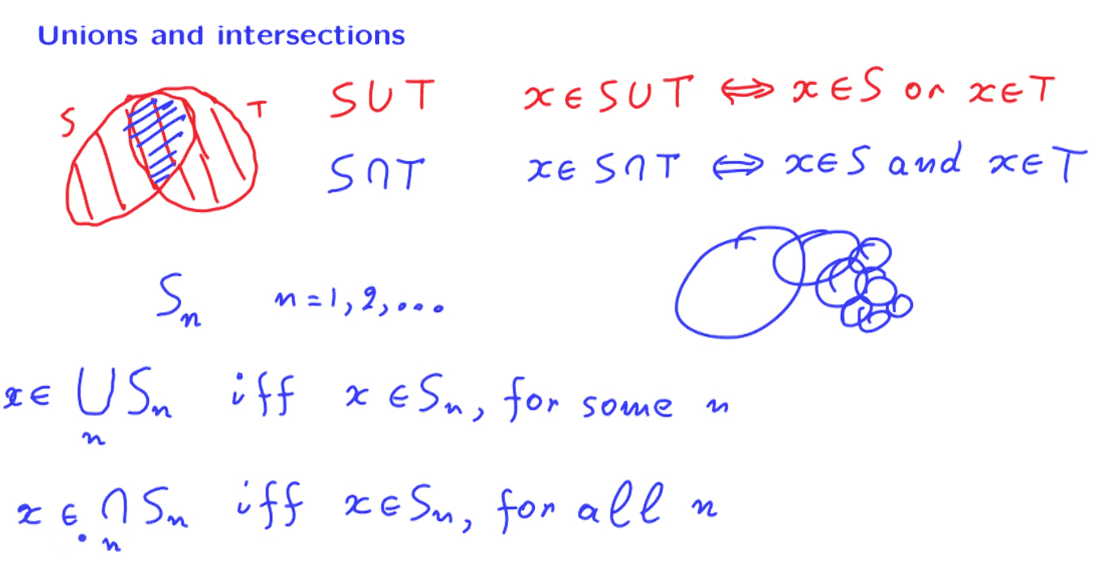 Unions and intersections
S T S ∪ T x ∈ S ∪ T ⇔ x ∈ S or x ∈ T
S ∩ T x ∈ S ∩ T ⇔ x ∈ S and x ∈ T
Sₙ n = 1, 2, ...
x ∈ ⋃ₙ Sₙ iff x ∈ Sₙ, for some n
x ∈ ⋂ₙ Sₙ iff x ∈ Sₙ, for all n